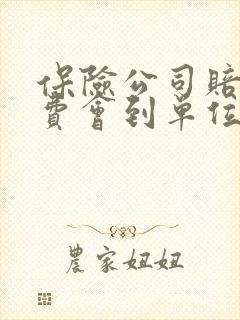 保險公司賠
費會到單位
農家妞妞